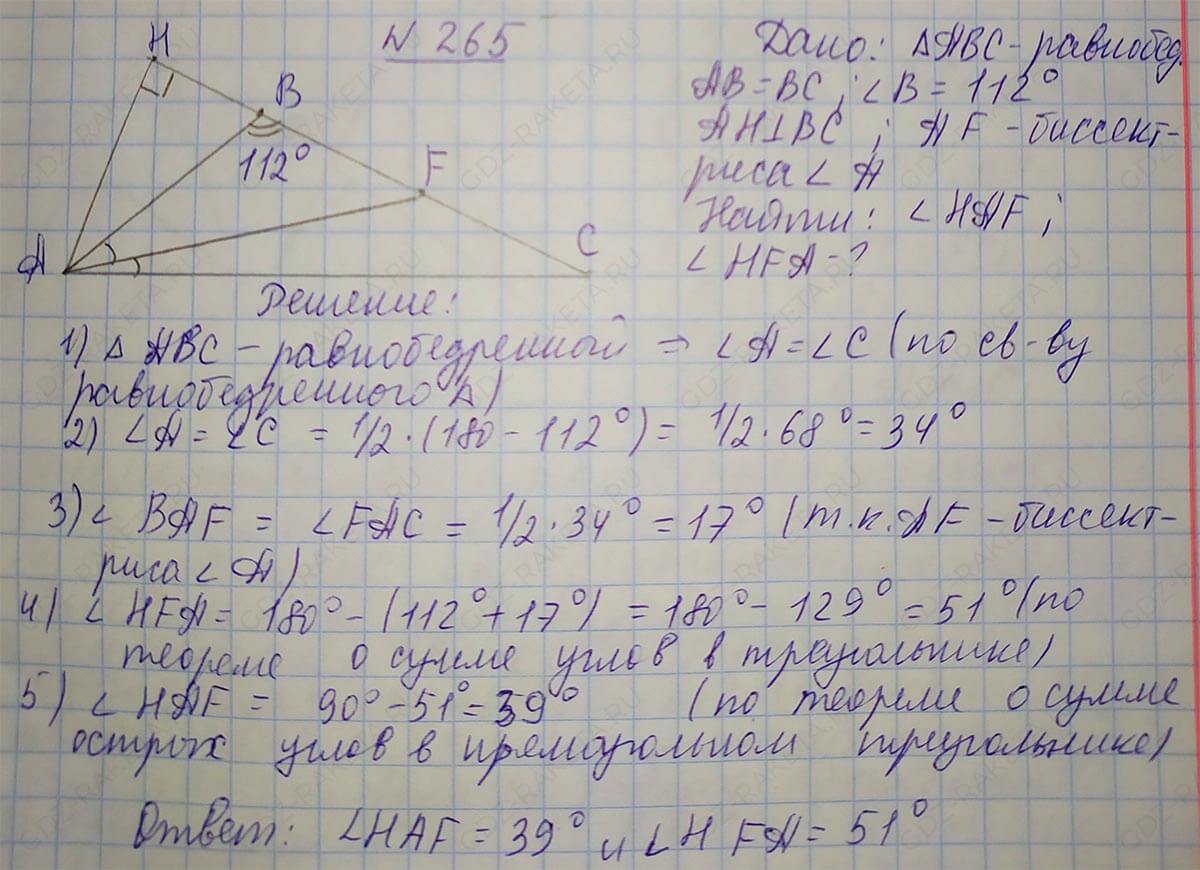 № 265
H
B
112°
F
A
C
Дано: △ABC - равнобед.
AB = BC ; ∠B = 112°
AH⊥BC ; AF - биссект-
риса ∠A
Найти: ∠HAF ;
∠HFA - ?
Решение:
1) △ ABC - равнобедренный ⇒ ∠A = ∠C (по св-ву
равнобедренного △)
2) ∠A = ∠C = 1/2 · (180 - 112°) = 1/2 · 68° = 34°
3) ∠ BAF = ∠FAC = 1/2 · 34° = 17° (т.к. AF - биссект-
риса ∠A)
4) ∠ HFA = 180° - (112° + 17°) = 180° - 129° = 51° (по
теореме о сумме углов в треугольнике)
5) ∠ HAF = 90° - 51° = 39° (по теореме о сумме
острых углов в прямоугольном треугольнике)
Ответ: ∠HAF = 39° и ∠HFA = 51°
GDZ-RAKETA.RU